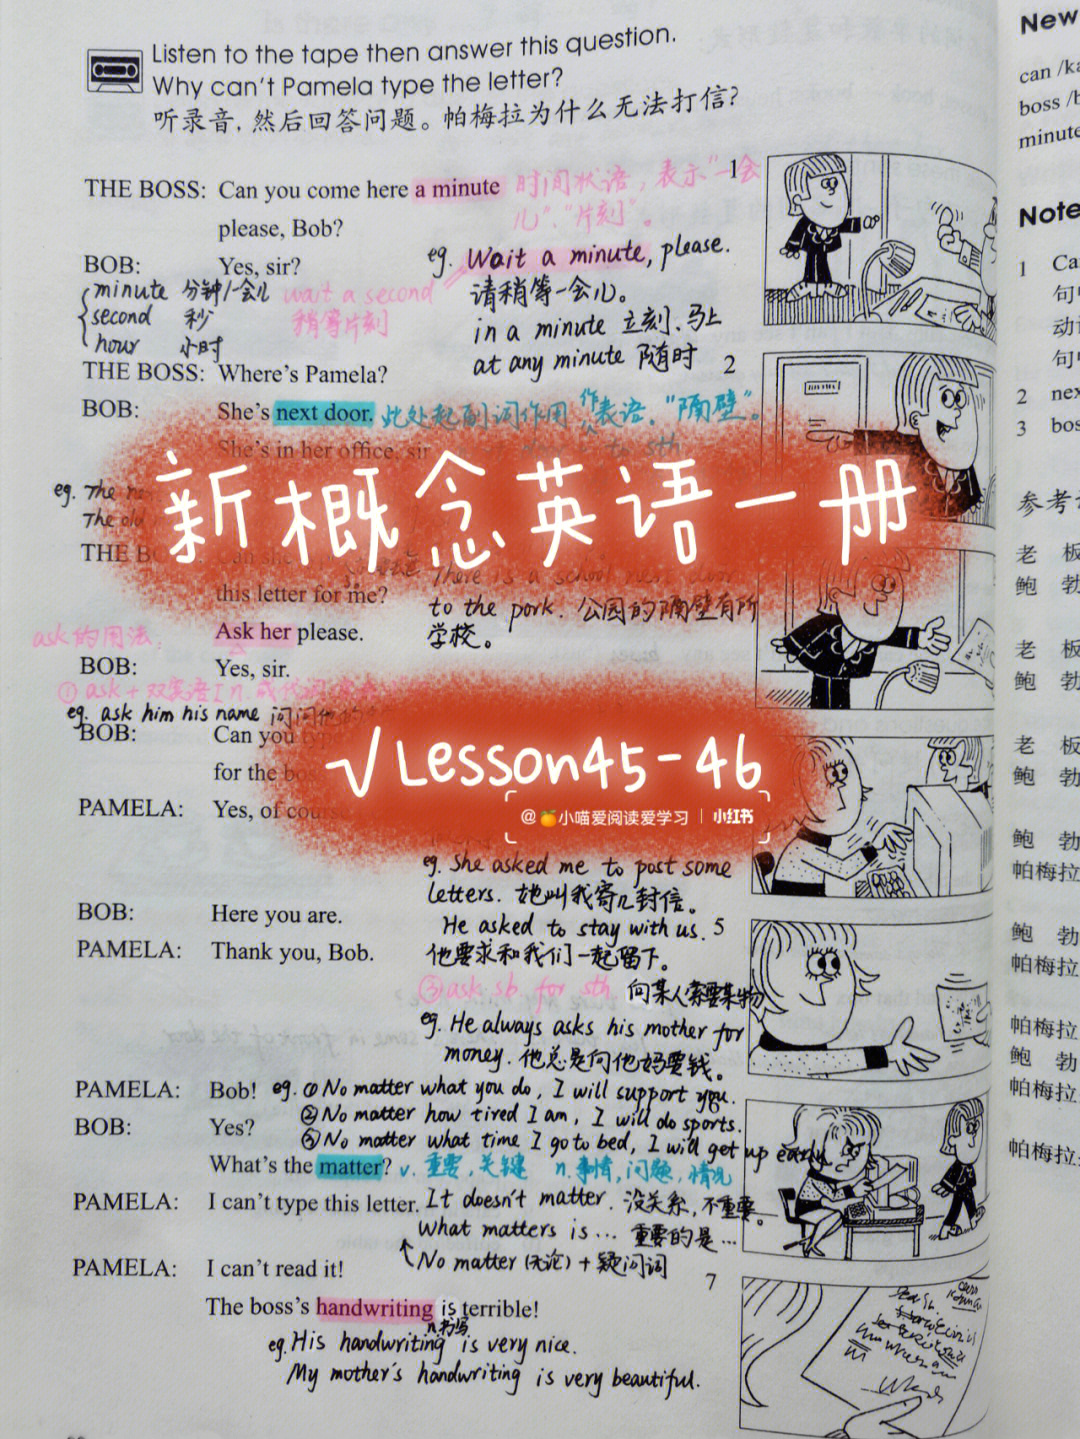 Listen to the tape then answer this question.
Why can't Pamela type the letter?
听录音，然后回答问题。帕梅拉为什么无法打信？
THE BOSS: Can you come here a minute
时间状语，表示"一会
儿"、"片刻"。
1
please, Bob?
eg. Wait a minute, please.
BOB: Yes, sir?
请稍等一会儿。
minute 分钟/一会儿
wait a second
second 秒
稍等片刻
hour 小时
in a minute 立刻、马上
at any minute 随时
2
THE BOSS: Where's Pamela?
BOB: She's next door. 此处起副词作用 作表语. "隔壁"。
She's in her office, sir
to sth
eg. The
The old
新概念英语一册
THE
Can she
There is a school next door
this letter for me?
to the pork. 公园的隔壁有所
学校。
ask的用法:
Ask her please.
BOB: Yes, sir.
① ask + 双宾语
eg. ask him his name 问问他的
BOB: Can you type
for the boss
√Lesson45-46
PAMELA: Yes, of course
@🍊小喵爱阅读爱学习 | 小红书
eg. She asked me to post some
letters. 她叫我寄几封信。
BOB: Here you are.
He asked to stay with us.
5
PAMELA: Thank you, Bob.
他要求和我们一起留下。
③ask sb. for sth 向某人索要某物
eg. He always asks his mother for
money. 他总是向他妈要钱。
PAMELA: Bob!
eg. ①No matter what you do, I will support you.
6
BOB: Yes?
②No matter how tired I am, I will do sports.
③No matter what time I go to bed, I will get up early.
What's the matter? v. 重要,关键 n.事情,问题,情况
PAMELA: I can't type this letter.
It doesn't matter. 没关系,不重要。
What matters is... 重要的是...
No matter (无论) + 疑问词
PAMELA: I can't read it!
7
The boss's handwriting is terrible!
n.书写
eg. His handwriting is very nice.
My mother's handwriting is very beautiful.
New
can /ka
boss /b
minute
Note
1 Ca
句
动
句
2 nex
3 bos
参考
老 板
鲍 勃
老 板
鲍 勃
老 板
鲍 勃
鲍 勃
帕梅拉
鲍 勃
帕梅拉
帕梅拉
鲍 勃
帕梅拉
帕梅拉